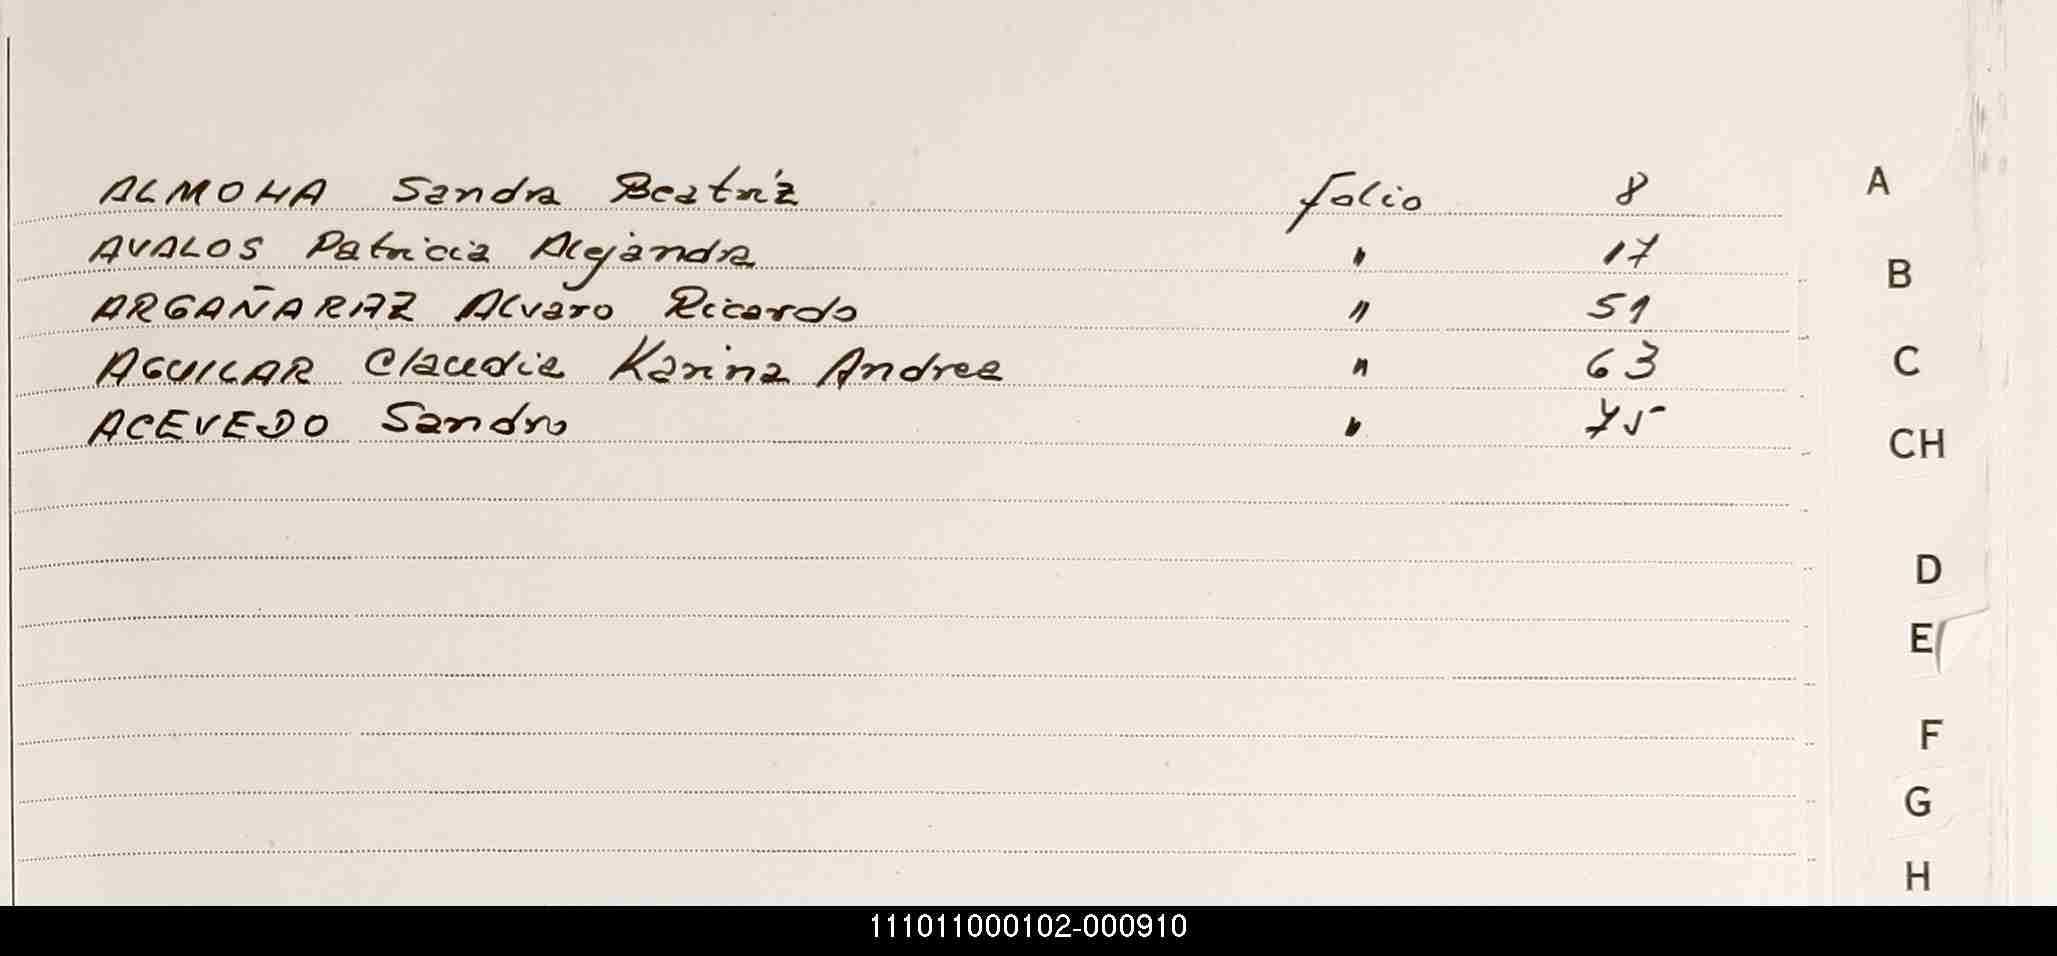 ALMOHA Sandra Beatriz folio 8 A
AVALOS Patricia Alejandra " 17
B
ARGAÑARAZ Alvaro Ricardo " 51
AGUILAR Claudia Karina Andrea " 63 C
ACEVEDO Sandro " 75 CH
D
E
F
G
H
111011000102-000910